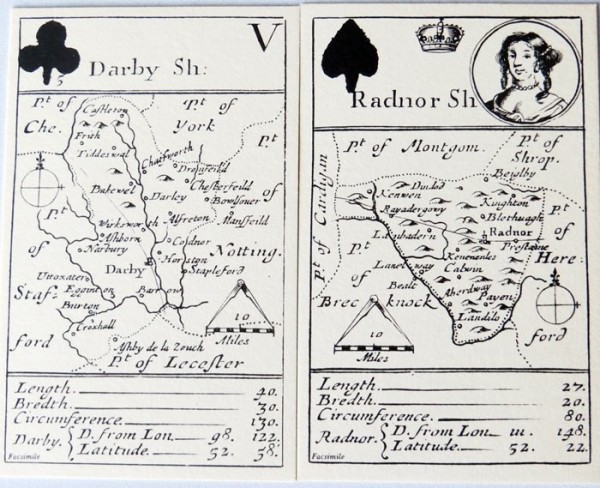 5
V
Darby Sh:
Pt. of
Che.
Pt. of
York
Castleton
Frith
Tiddeswal
Chattsworth
Dronfeild
Chesterfeild
Bakewel
Darley
Bowsouer
Mansfeild
Pt. of
Pt.
of
Staf:
ford
Wirksworth
Alfreton
Ashborn
Norbury
Codnor
Horston
Notting:
Darby
Stapleford
Uttoxater
Egginton
Burton
Barrow
Croxhall
Ashby de la Zouch
Pt. of Lecester
10
Miles
Length. 40.
Bredth. 30.
Circumference. 130.
Darby. { D. from Lon 98. 122.
Latitude. 52. 58.
Facsimile
Radnor Sh
Pt. of Montgom.
Pt. of
Shrop.
Pt. of Cardigan
Beigby
Dindod
Kenwen
Rayadergowy
Knighton
Blethuagh
Radnor
Lanbadern
Prestaine
Kenenanles
Lanetway
Calwin
Pt.
of
Here:
ford
Bealt
Aberdway
Paven
Brecknock
Landilo
10
Miles
Length. 27.
Bredth. 20.
Circumference. 80.
Radnor. { D. from Lon 111. 148.
Latitude. 52. 22.
Facsimile